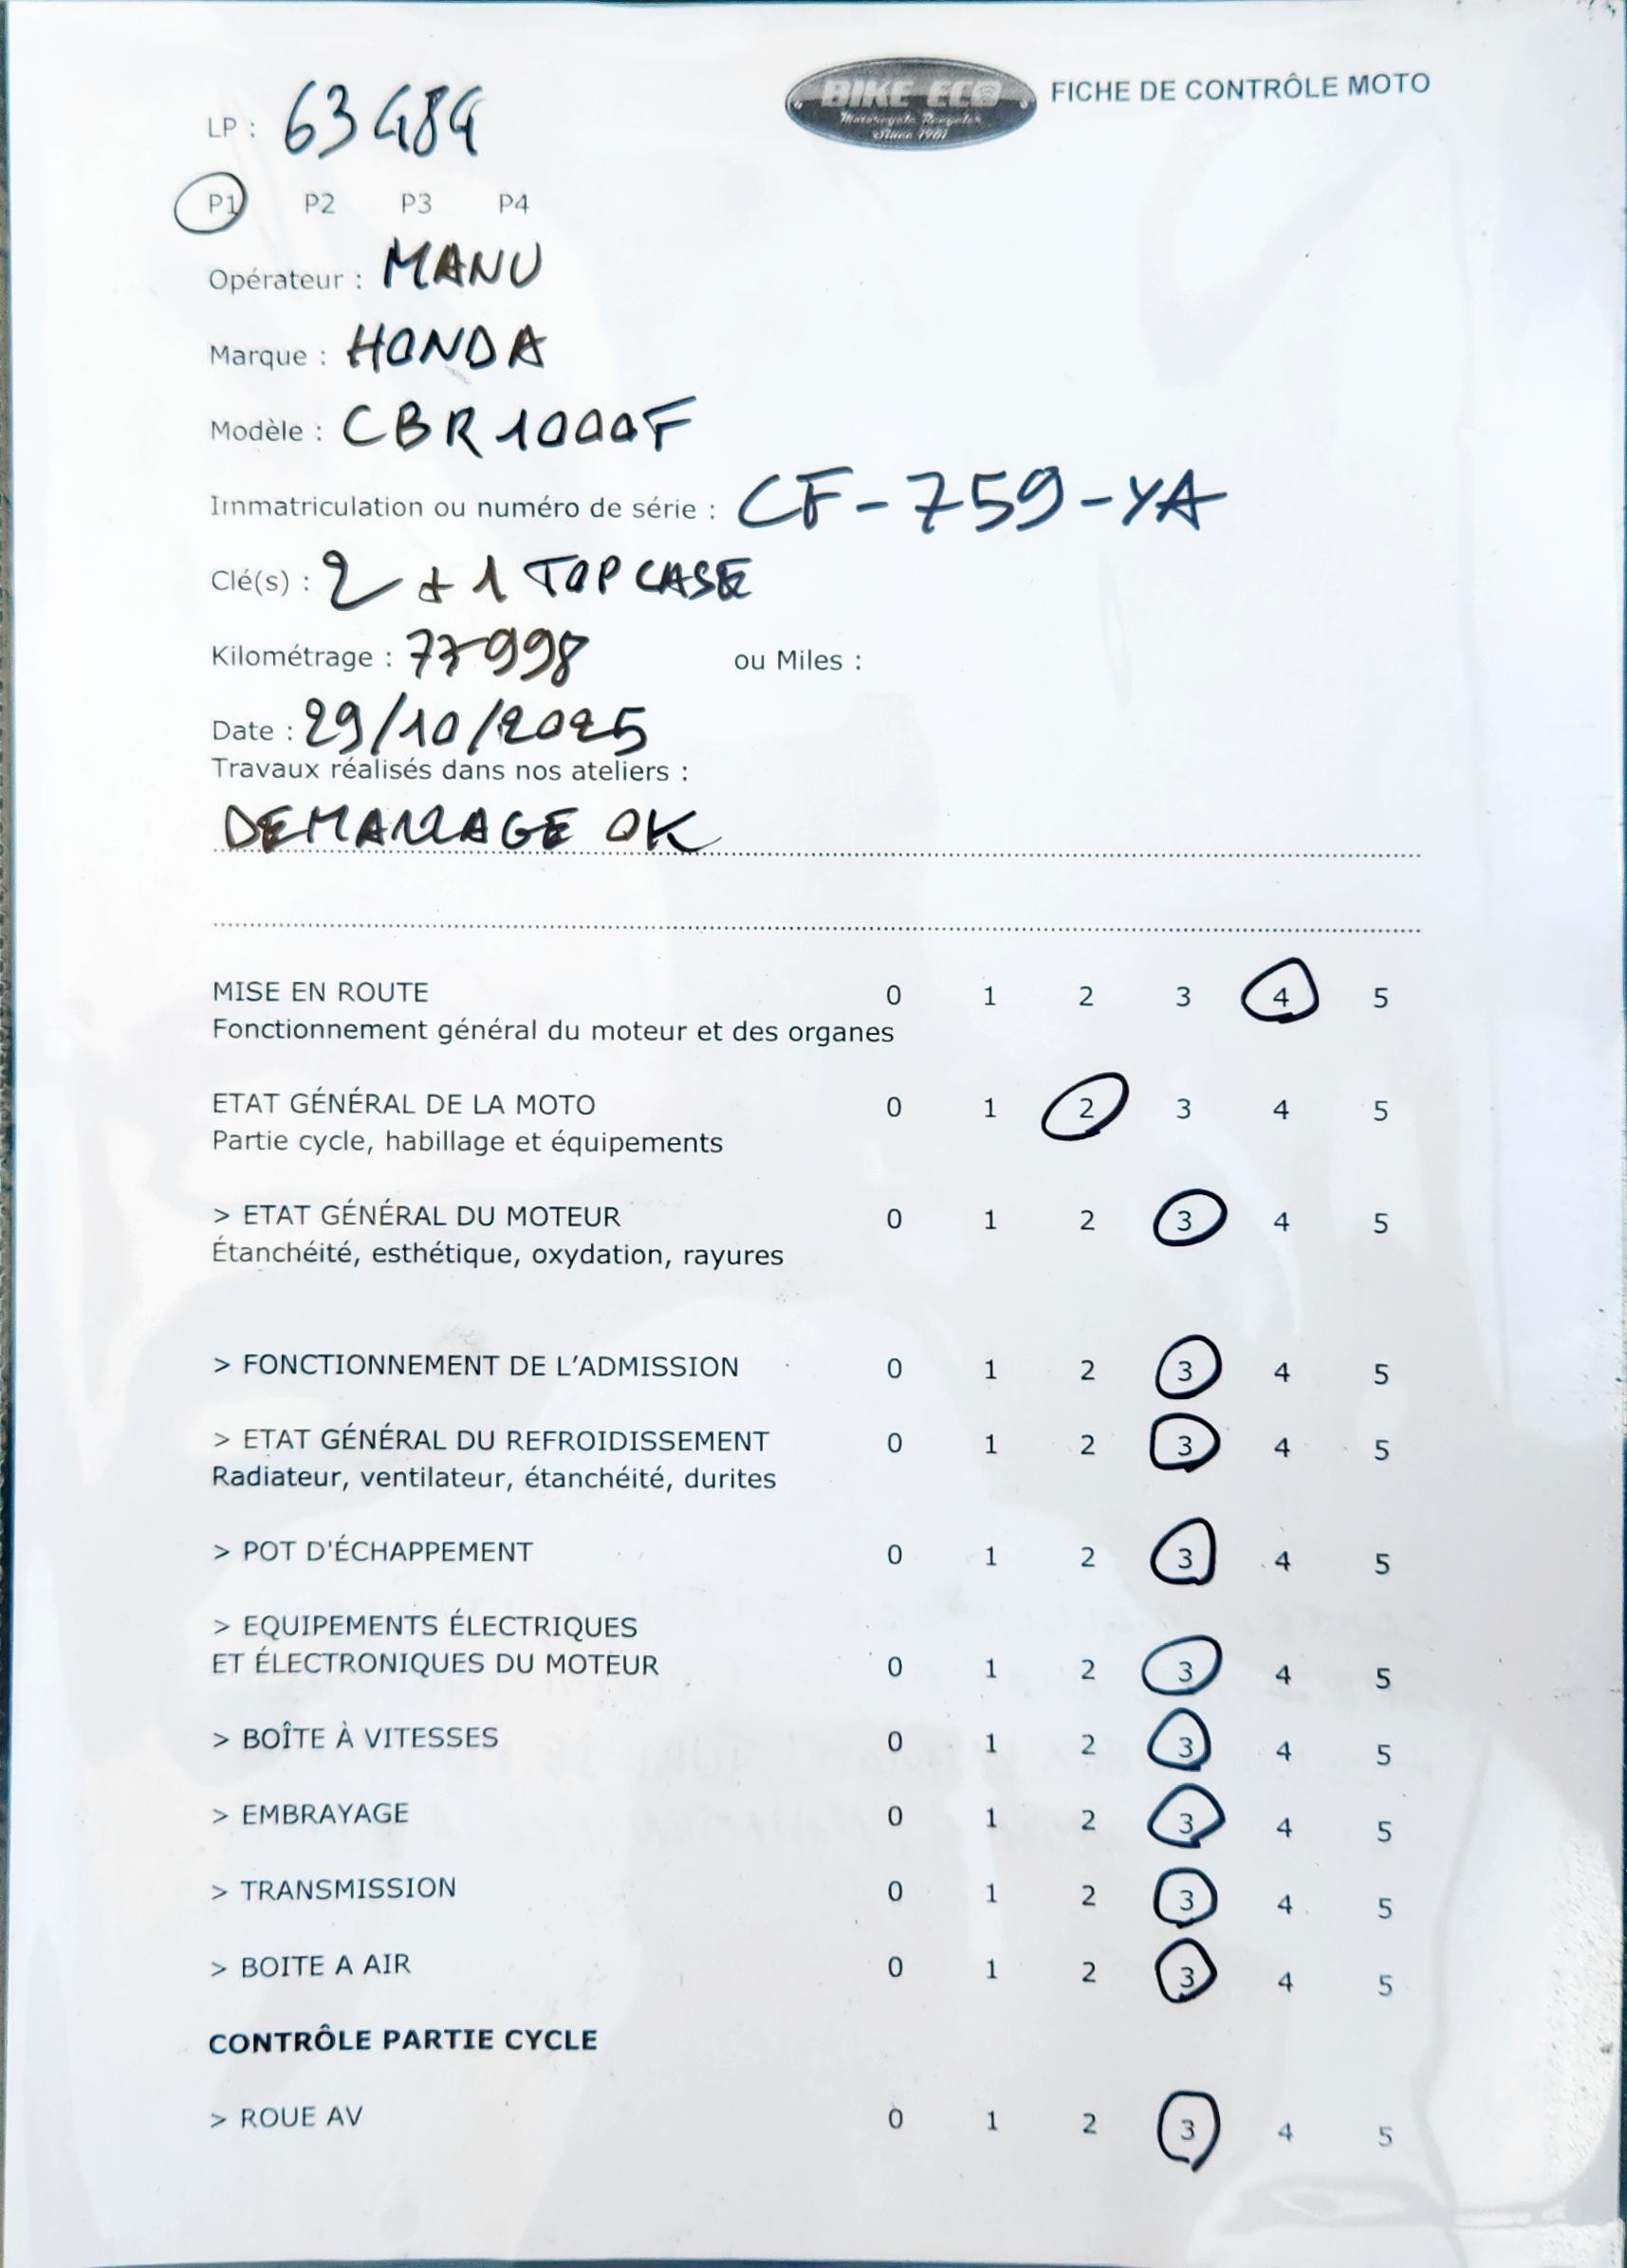 BIKE ECO
Motorcycle Recycler
Since 1981
FICHE DE CONTRÔLE MOTO
LP : 63484
P1 P2 P3 P4
Opérateur : MANU
Marque : HONDA
Modèle : CBR 1000F
Immatriculation ou numéro de série : CF-759-YA
Clé(s) : 2 + 1 TOP CASE
Kilométrage : 77998 ou Miles :
Date : 29/10/2025
Travaux réalisés dans nos ateliers :
DEMARRAGE OK
MISE EN ROUTE 0 1 2 3 4 5
Fonctionnement général du moteur et des organes
ETAT GÉNÉRAL DE LA MOTO 0 1 2 3 4 5
Partie cycle, habillage et équipements
> ETAT GÉNÉRAL DU MOTEUR 0 1 2 3 4 5
Étanchéité, esthétique, oxydation, rayures
> FONCTIONNEMENT DE L'ADMISSION 0 1 2 3 4 5
> ETAT GÉNÉRAL DU REFROIDISSEMENT 0 1 2 3 4 5
Radiateur, ventilateur, étanchéité, durites
> POT D'ÉCHAPPEMENT 0 1 2 3 4 5
> EQUIPEMENTS ÉLECTRIQUES
ET ÉLECTRONIQUES DU MOTEUR 0 1 2 3 4 5
> BOÎTE À VITESSES 0 1 2 3 4 5
> EMBRAYAGE 0 1 2 3 4 5
> TRANSMISSION 0 1 2 3 4 5
> BOITE A AIR 0 1 2 3 4 5
CONTRÔLE PARTIE CYCLE
> ROUE AV 0 1 2 3 4 5